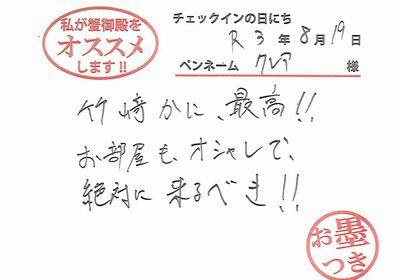 私が蟹御殿を
オススメ
します!!
チェックインの日にち
R3年8月19日
ペンネーム クレア 様
竹崎かに、最高!!
お部屋も、オシャレで、
絶対に来るべき!!
お墨
つき